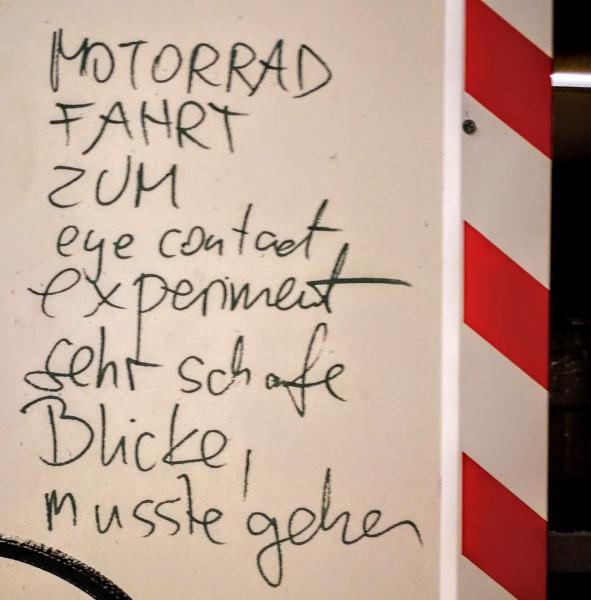 MOTORRAD
FAHRT
ZUM
eye contact
experiment
sehr schafe
Blicke,
musste gehen